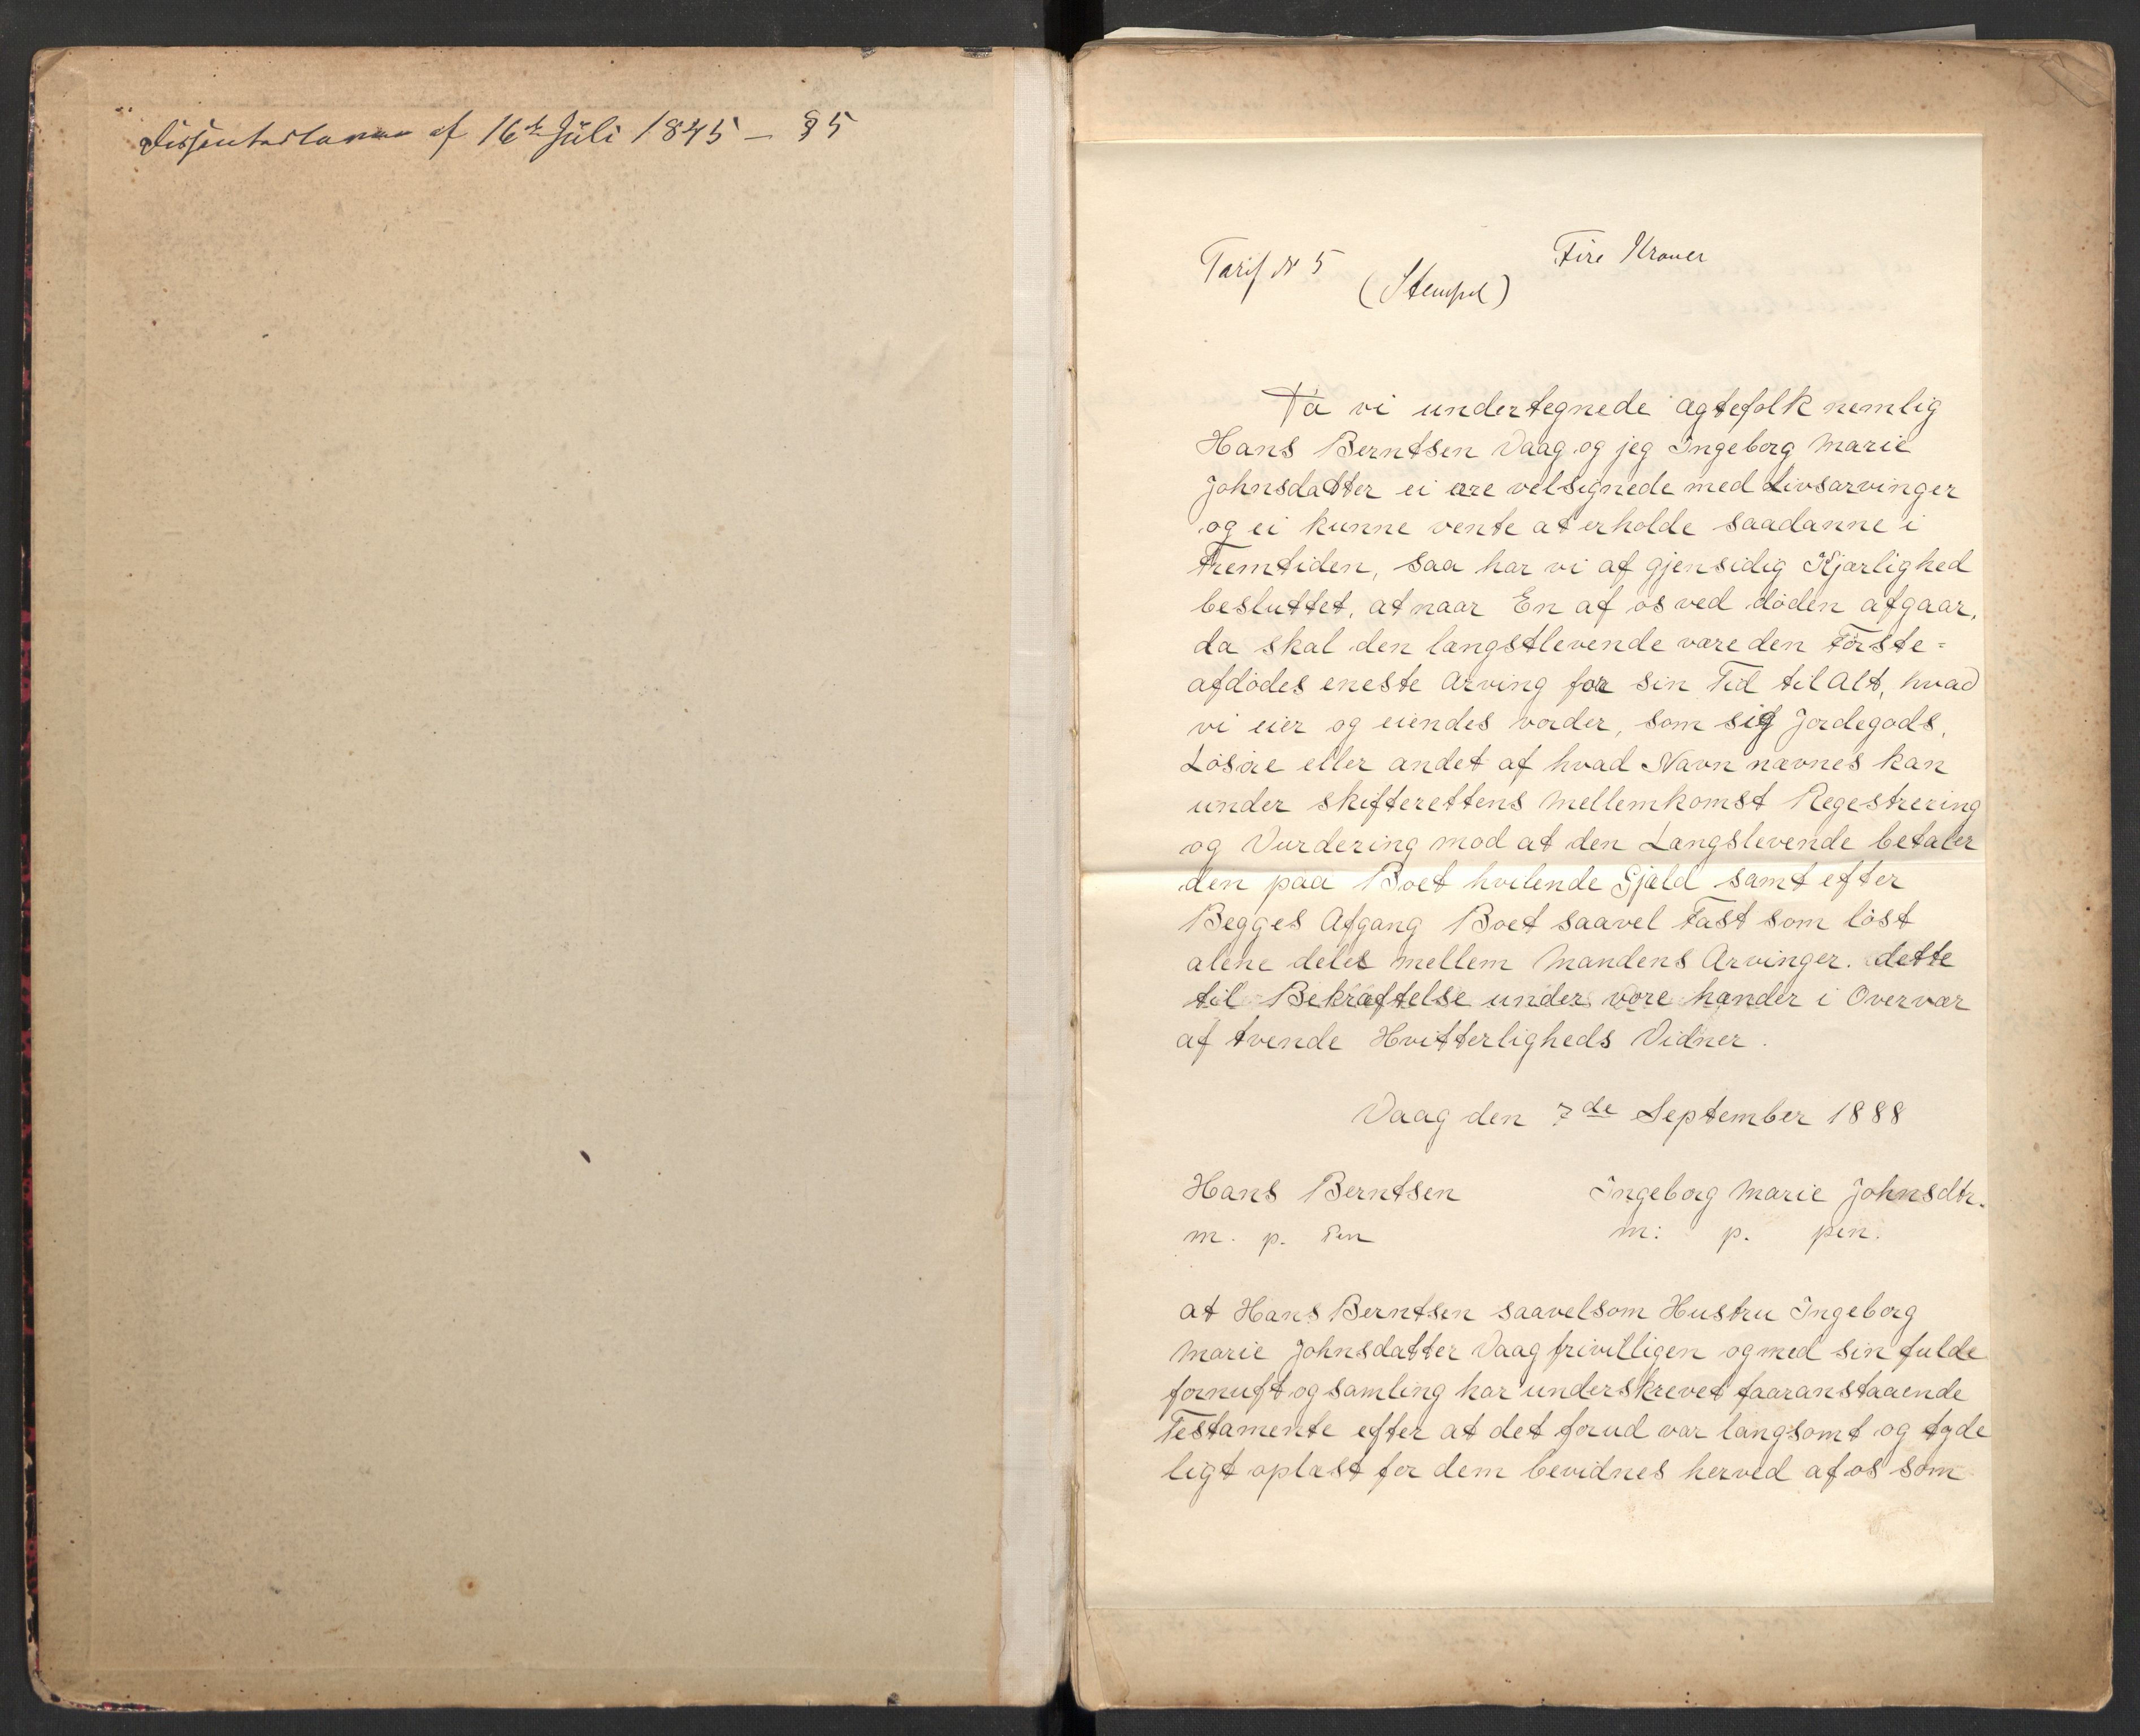 Dissenterloven af 16de Juli 1845 – §5
Tarif N 5
Fire Kroner
(Stempel)
Da vi undertegnede Ægtefolk nemlig
Hans Berntsen Vaag og jeg Ingeborg Marie
Johnsdatter ei ere velsignede med Livsarvinger
og ei kunne vente at erholde saadanne i
Fremtiden, saa har vi af gjensidig Kjærlighed
besluttet, at naar En af os ved døden afgaar,
da skal den længstlevende være den Første-
afdødes eneste Arving for sin Tid til Alt, hvad
vi eier og eiendes vorder, som sig Jordegods,
Løsøre eller andet af hvad Navn nævnes kan
under skifterettens Mellemkomst Regestrering
og Vurdering mod at den Længslevende betaler
den paa Boet hvilende Gjæld samt efter
Begges Afgang Boet saavel Fast som løst
alene deles mellem Mandens Arvinger. dette
til Bekræftelse under vore hænder i Overvær
af tvende Hvitterligheds Vidner.
Vaag den 7de September 1888
Hans Berntsen Ingeborg Marie Johnsdtr.
m. p. Pen m: p. pen.
at Hans Berntsen saavelsom Hustru Ingeborg
Marie Johnsdatter Vaag frivilligen og med sin fulde
fornuft og samling har underskrevet faaranstaaende
Testamente efter at det forud var langsomt og tyde
ligt oplæst for dem bevidnes herved af os som